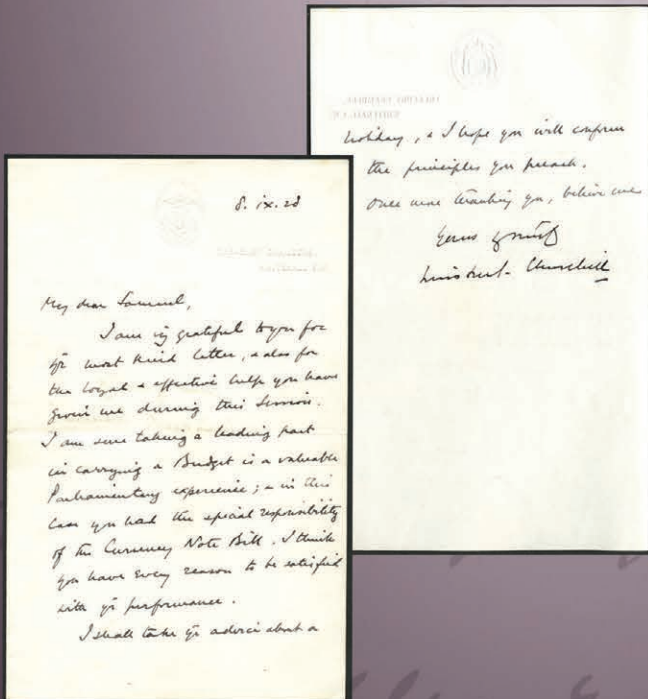 8. ix. 28
My dear Samuel,
I am vy grateful to you for
yr most kind letter, & also for
the loyal & effective help you have
given me during this Session.
I am sure taking a leading part
in carrying a Budget is a valuable
Parliamentary experience; & in this
case you had the special responsibility
of the Currency Note Bill. I think
you have every reason to be satisfied
with yr performance.
I shall take yr advice about a
holiday, & I hope you will confirm
the principles you preach.
Once more thanking you, believe me
Yours
Winston S. Churchill